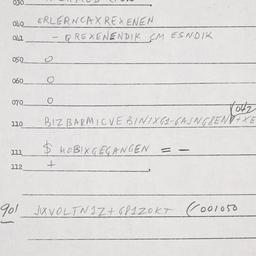 040 ERLERNCAXREXENEN
041 - QREXENENDIK CM ESNDIK
050 O
060 O
070 O
(042
110 BIZBARMICVEBINIXG1-GAJNG8EN + XE
111 $ HOBIXGEGANGEN = -
112 +
901 JXVOLTN1Z+GP1ZOKT (001050